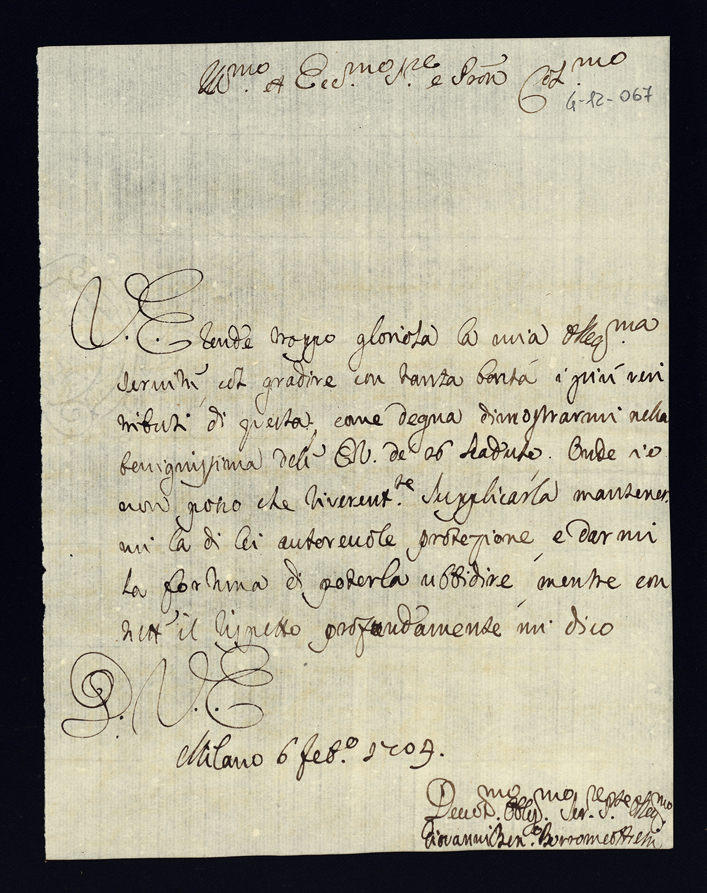 Ill.mo et Ecc.mo Sre e Pron Col.mo
G-12-067
V. E. rende troppo gloriosa la mia osseq.ma
servitù col gradire con tanta bontà i più veri
tributi di questa, come degna dimostrarmi nella
benignissima dell' E.V. de 26 scaduto. Onde io
non posso che riverent.te supplicarla mantener:
mi la di lei autorevole protezione e darmi
la fortuna di poterla ubbidire, mentre con
tutt' il rispetto profondamente mi dico
D. V. E.
Milano 6 feb.o 1709.
Devot.mo Oblig.mo Ser.re
Giovanni Ben.o Borromeo Arese